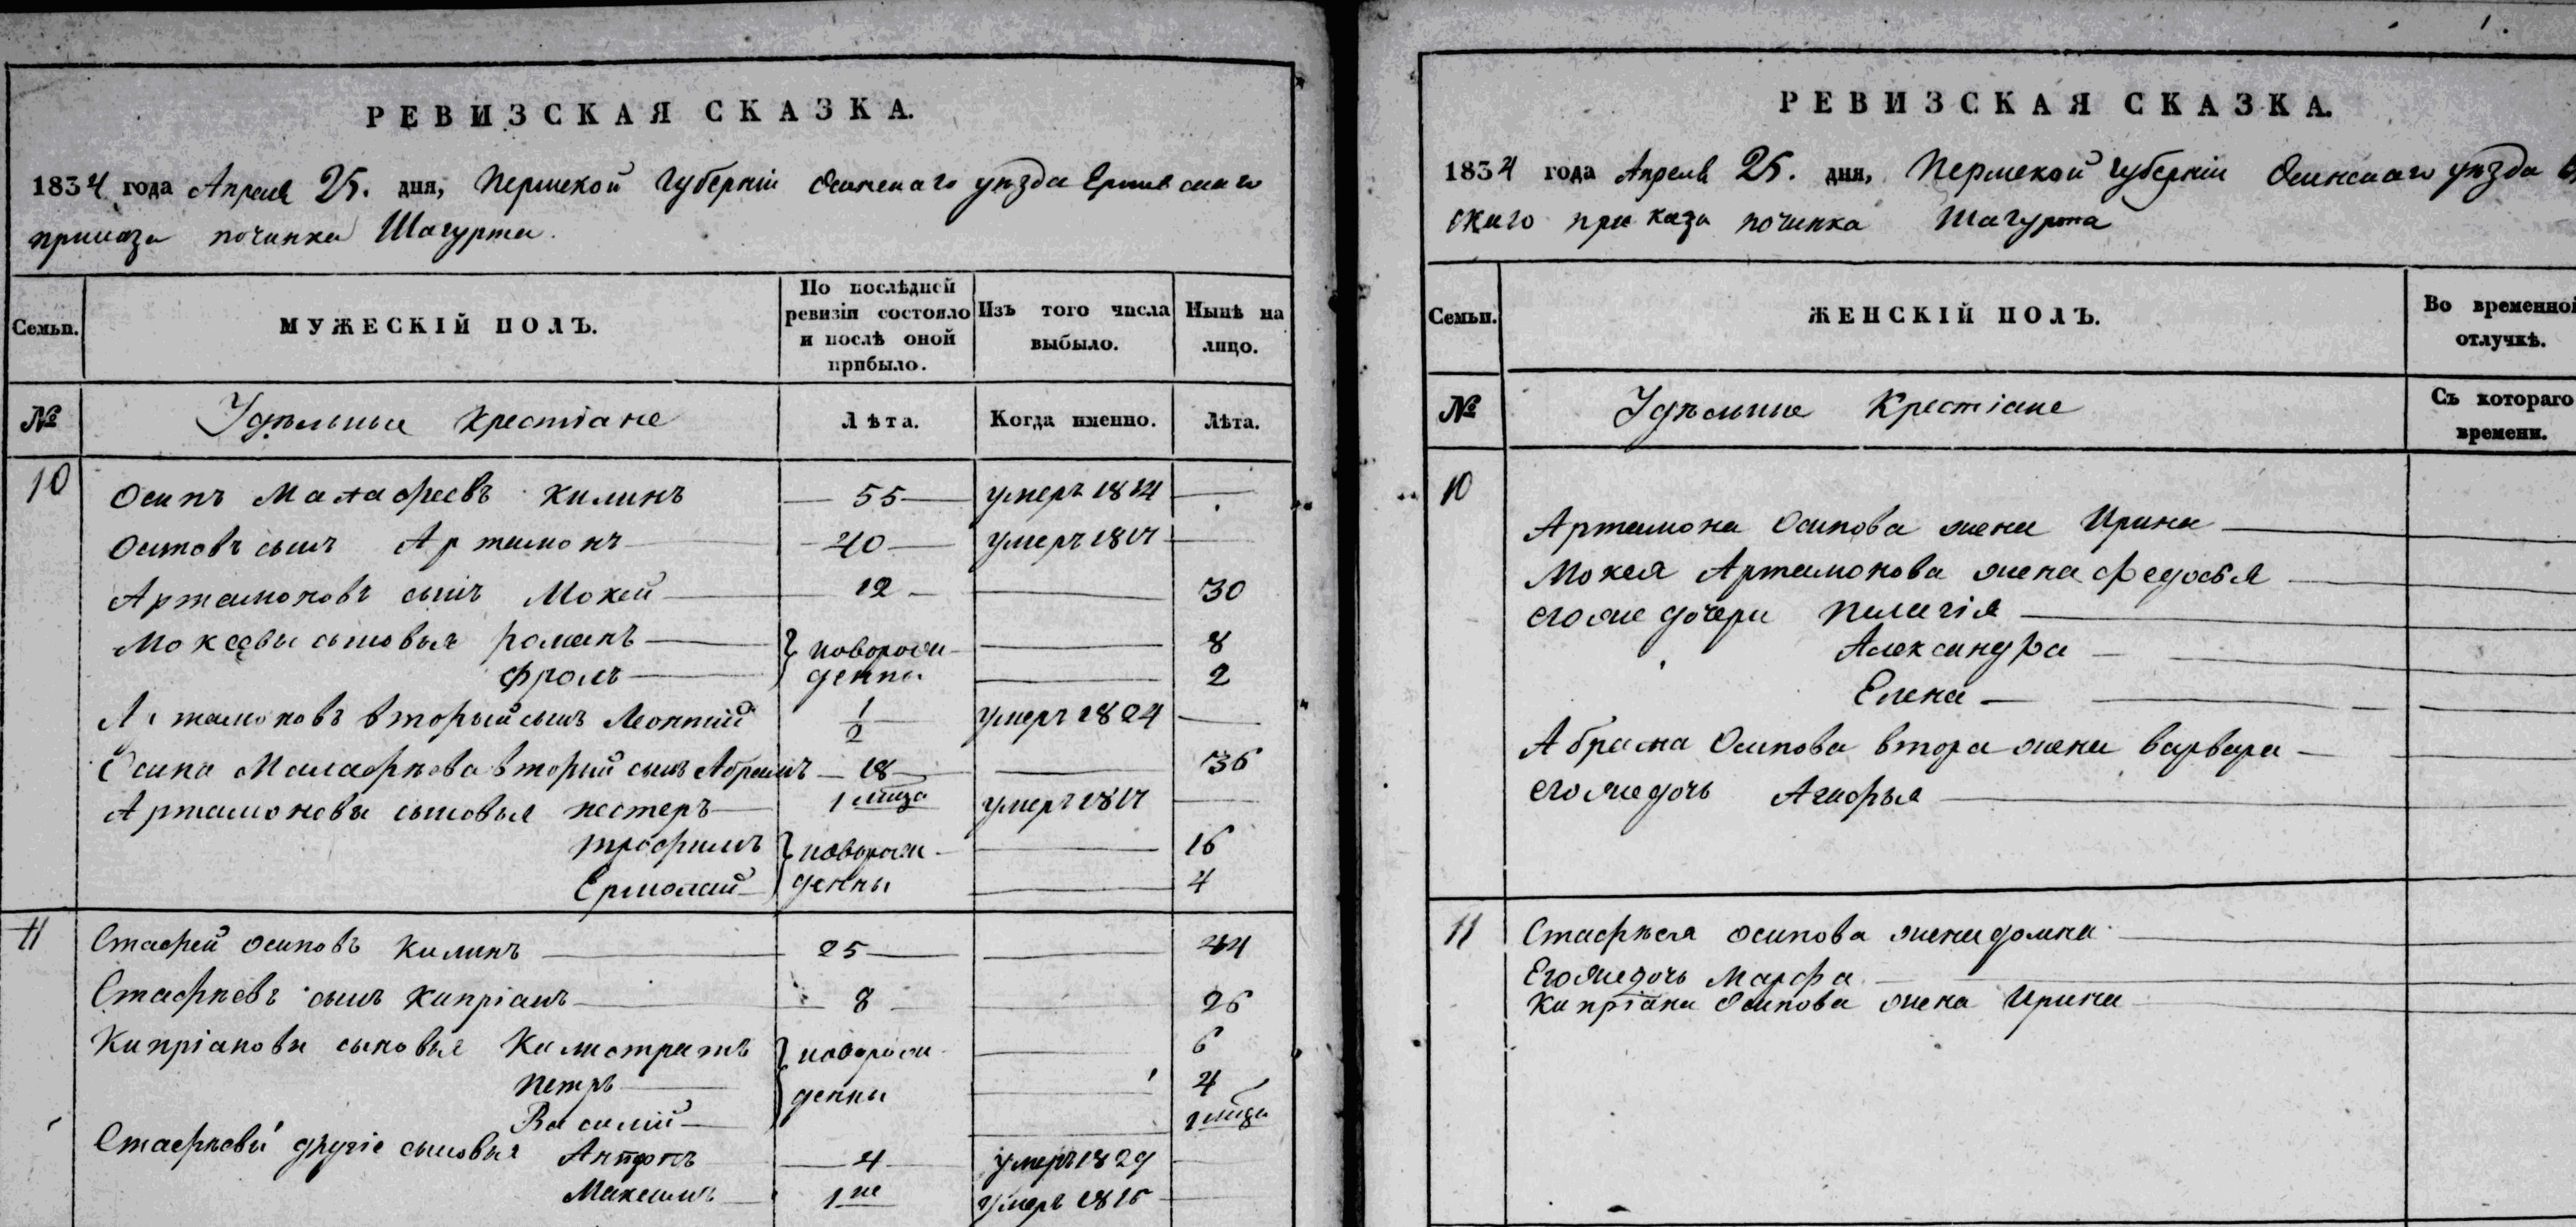 РЕВИЗСКАЯ СКАЗКА.
1834 года Апреля 25. дня, Пермской Губерніи Осинскаго уѣзда Ершовскаго
приказа починка Шагурта.
Семьи.
МУЖЕСКІЙ ПОЛЪ.
По послѣдней
ревизіи состояло
и послѣ оной
прибыло.
Изъ того числа
выбыло.
Нынѣ на
лицо.
№
Удѣльные Крестіане
Лѣта.
Когда именно.
Лѣта.
10
Осипъ Малафеевъ Килинъ 55 умеръ 1814
Осиповъ сынъ Артамонъ 40
Артамоновъ сынъ Мокей 12 30
Мокеевы сыновья Романъ новорож 8
Фролъ денны 2
Артамоновъ вторый сынъ Леонтий 1/2 умеръ 1824
Осипа Малафѣева вторый сынъ Абрамъ 18 36
Артамоновы сыновья Нестеръ 1 мѣсца
Трофимъ новорож 16
Ермолай денны 4
11
Стафей Осиповъ Килинъ 25 44
Стафѣевъ сынъ Кипріанъ 8 26
Кипріановы сыновья Калистратъ новорож 6
Петръ денны 4
Василий
Стафѣевы другіе сыновья Антонъ 4 умеръ 1829
Максимъ 1 не умеръ
РЕВИЗСКАЯ СКАЗКА.
1834 года Апреля 25. дня, Пермской Губерніи Осинскаго уѣзда
скаго приказа починка Шагурта
Семьи.
ЖЕНСКІЙ ПОЛЪ.
Во временной
отлучкѣ.
№
Удѣльные Крестіане
Съ котораго
времени.
10
Артамона Осипова жена Ирина
Мокея Артамонова жена Федосья
его же дочери Пелагія
Александра
Елена
Абрама Осипова втора жена Варвара
его же дочь Агафья
11
Стафѣя Осипова жена Домна
Его же дочь Марфа
Кипріана Осипова жена Ирина